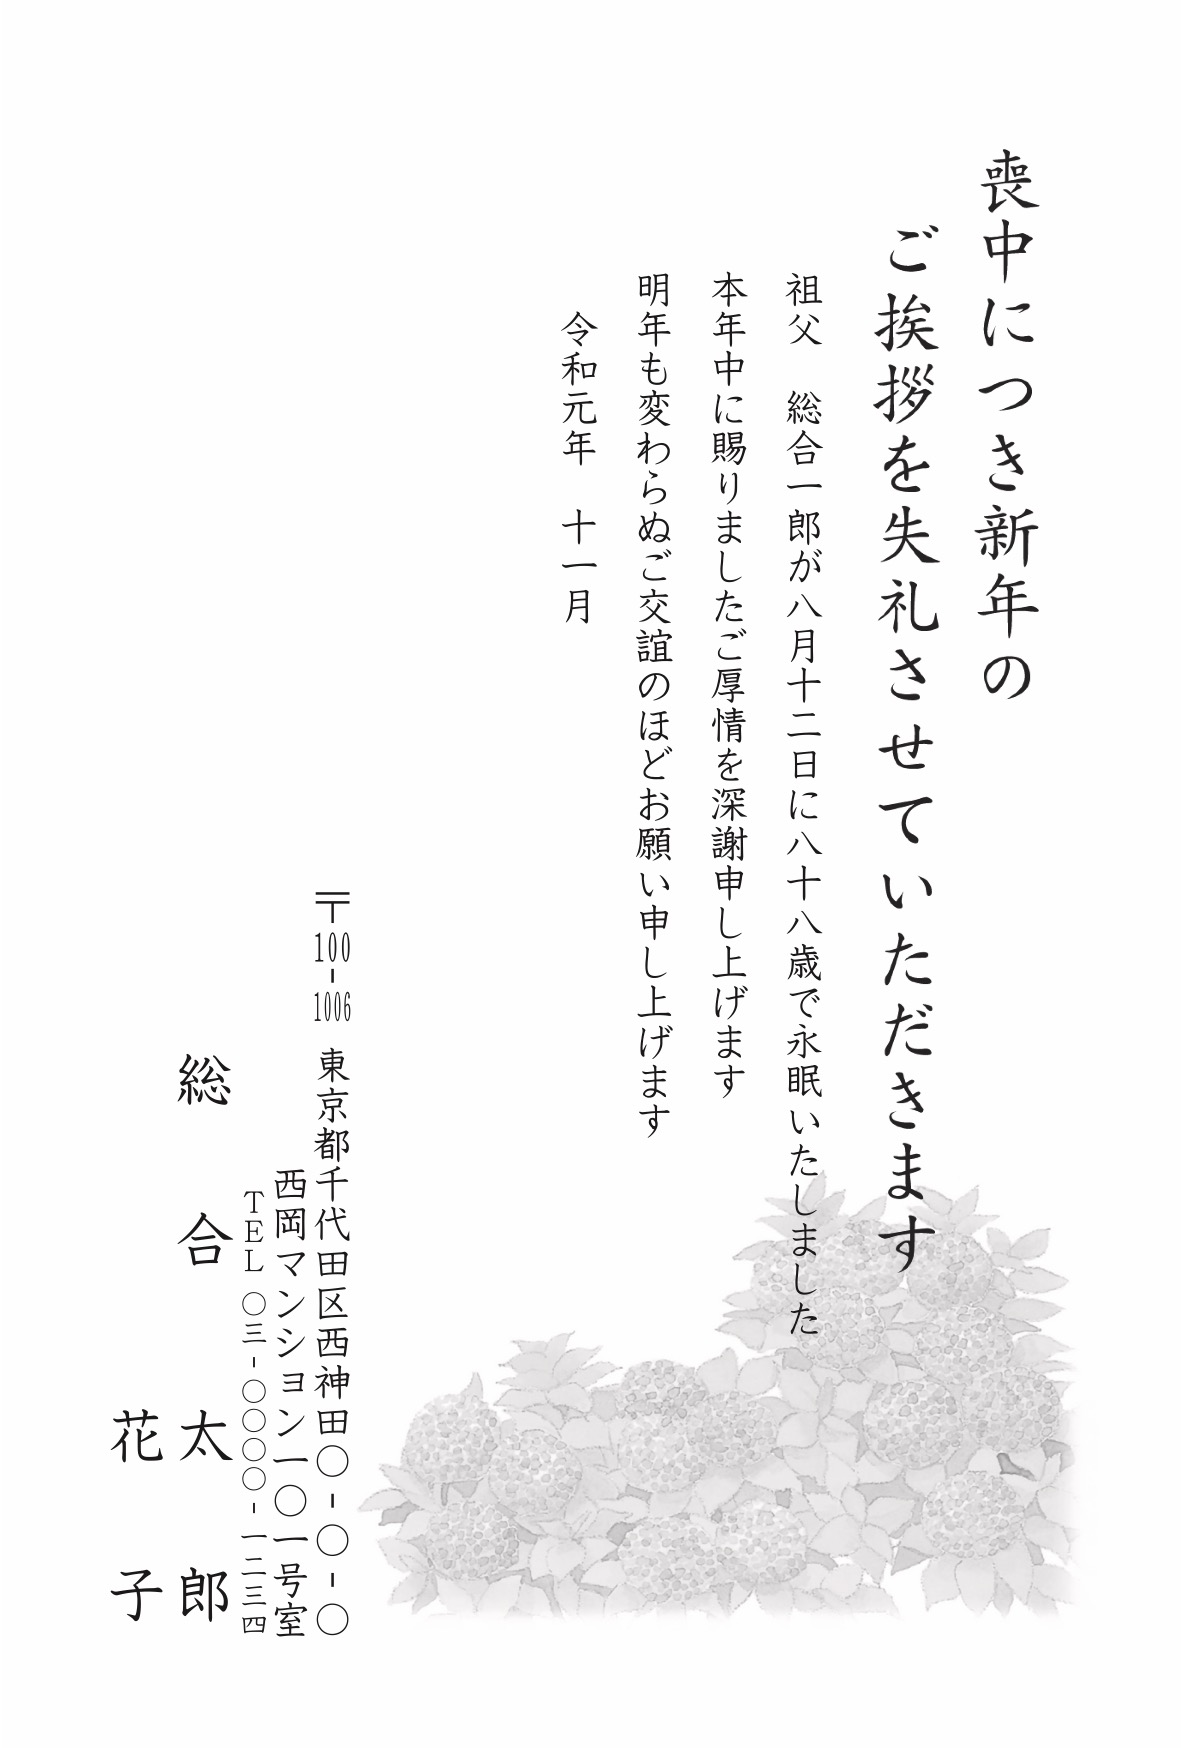 喪中につき新年の
ご挨拶を失礼させていただきます
祖父　総合一郎が八月十二日に八十八歳で永眠いたしました
本年中に賜りましたご厚情を深謝申し上げます
明年も変わらぬご交誼のほどお願い申し上げます
令和元年　十一月
〒100-1006　東京都千代田区西神田〇-〇-〇
西岡マンション一〇一号室
TEL 〇三-〇〇〇〇-一二三四
総合　太郎
花子